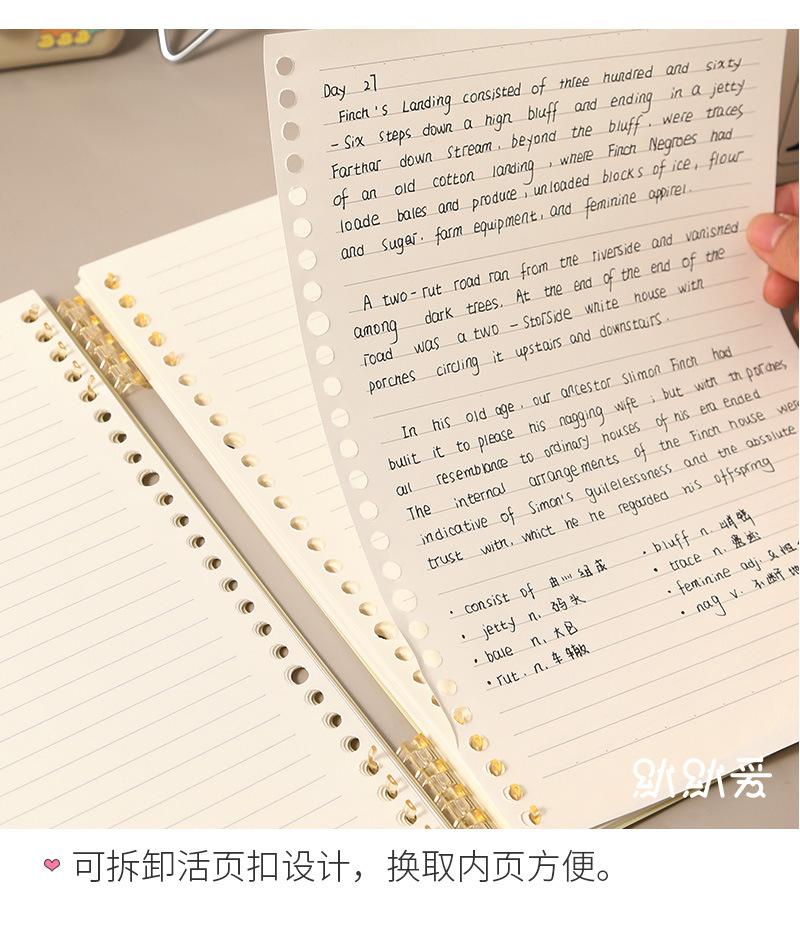 Day 27
Finch's Landing consisted of three hundred and sixty
-Six steps down a high bluff and ending in a jetty
Farthar down stream. beyond the bluff. were traces
of an old cotton landing, where Finch Negroes had
loade bales and produce, unloaded blocks of ice, flour
and sugar. farm equipment, and feminine appirel.
A two-rut road ran from the riverside and vanished
among dark trees. At the end of the end of the
road was a two-Storside white house with
porches circling it upstairs and downstairs.
In his old age, our ancestor Slimon Finch had
bulit it to please his nagging wife; but with th porches
all resemblance to ordinary houses of his era ended
The internal arrangements of the Finch house were
indicative of Simon's guilelessoness and the absolute
trust with, whict he he regarded his offspring
• consist of 由…组成
• jetty n. 码头
• bale n. 大包
• rut. n. 车辙
• bluff n. 峭壁
• trace n.
• feminine adj. 女性
• nag v. 不断
趴趴爱
可拆卸活页扣设计，换取内页方便。